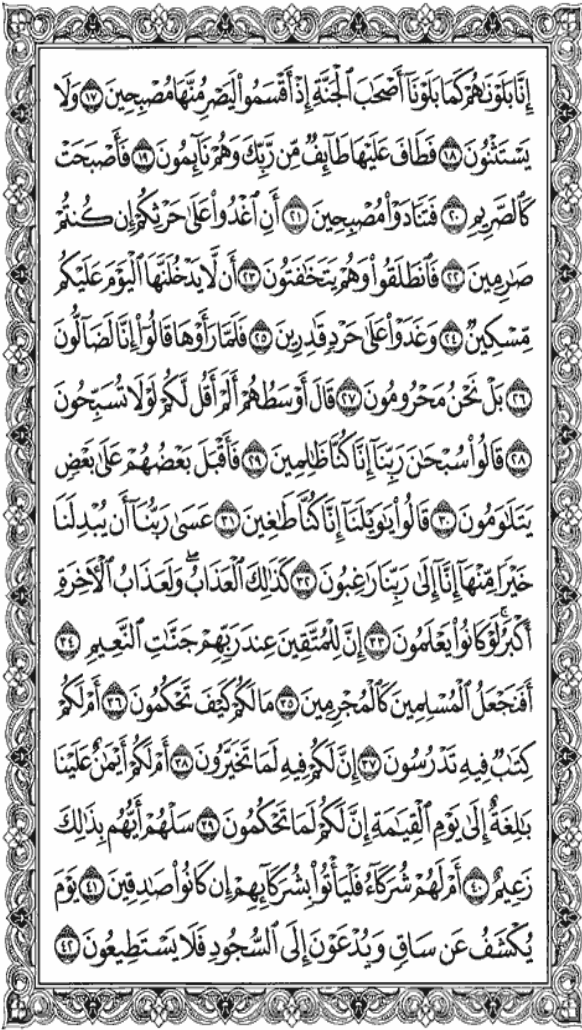 إِنَّا بَلَوْنَٰهُمْ كَمَا بَلَوْنَآ أَصْحَٰبَ ٱلْجَنَّةِ إِذْ أَقْسَمُوا۟ لَيَصْرِمُنَّهَا مُصْبِحِينَ ١٧ وَلَا
يَسْتَثْنُونَ ١٨ فَطَافَ عَلَيْهَا طَآئِفٌ مِّن رَّبِّكَ وَهُمْ نَآئِمُونَ ١٩ فَأَصْبَحَتْ
كَٱلصَّرِيمِ ٢٠ فَتَنَادَوْا۟ مُصْبِحِينَ ٢١ أَنِ ٱغْدُوا۟ عَلَىٰ حَرْثِكُمْ إِن كُنتُمْ
صَٰرِمِينَ ٢٢ فَٱنطَلَقُوا۟ وَهُمْ يَتَخَٰفَتُونَ ٢٣ أَن لَّا يَدْخُلَنَّهَا ٱلْيَوْمَ عَلَيْكُم
مِّسْكِينٌ ٢٤ وَغَدَوْا۟ عَلَىٰ حَرْدٍ قَٰدِرِينَ ٢٥ فَلَمَّا رَأَوْهَا قَالُوٓا۟ إِنَّا لَضَآلُّونَ
٢٦ بَلْ نَحْنُ مَحْرُومُونَ ٢٧ قَالَ أَوْسَطُهُمْ أَلَمْ أَقُل لَّكُمْ لَوْلَا تُسَبِّحُونَ
٢٨ قَالُوا۟ سُبْحَٰنَ رَبِّنَآ إِنَّا كُنَّا ظَٰلِمِينَ ٢٩ فَأَقْبَلَ بَعْضُهُمْ عَلَىٰ بَعْضٍ
يَتَلَٰوَمُونَ ٣٠ قَالُوا۟ يَٰوَيْلَنَآ إِنَّا كُنَّا طَٰغِينَ ٣١ عَسَىٰ رَبُّنَآ أَن يُبْدِلَنَا
خَيْرًا مِّنْهَآ إِنَّآ إِلَىٰ رَبِّنَا رَٰغِبُونَ ٣٢ كَذَٰلِكَ ٱلْعَذَابُ ۖ وَلَعَذَابُ ٱلْءَاخِرَةِ
أَكْبَرُ ۚ لَوْ كَانُوا۟ يَعْلَمُونَ ٣٣ إِنَّ لِلْمُتَّقِينَ عِندَ رَبِّهِمْ جَنَّٰتِ ٱلنَّعِيمِ ٣٤
أَفَنَجْعَلُ ٱلْمُسْلِمِينَ كَٱلْمُجْرِمِينَ ٣٥ مَا لَكُمْ كَيْفَ تَحْكُمُونَ ٣٦ أَمْ لَكُمْ
كِتَٰبٌ فِيهِ تَدْرُسُونَ ٣٧ إِنَّ لَكُمْ فِيهِ لَمَا تَخَيَّرُونَ ٣٨ أَمْ لَكُمْ أَيْمَٰنٌ عَلَيْنَا
بَٰلِغَةٌ إِلَىٰ يَوْمِ ٱلْقِيَٰمَةِ إِنَّ لَكُمْ لَمَا تَحْكُمُونَ ٣٩ سَلْهُمْ أَيُّهُم بِذَٰلِكَ
زَعِيمٌ ٤٠ أَمْ لَهُمْ شُرَكَآءُ فَلْيَأْتُوا۟ بِشُرَكَآئِهِمْ إِن كَانُوا۟ صَٰدِقِينَ ٤١ يَوْمَ
يُكْشَفُ عَن سَاقٍ وَيُدْعَوْنَ إِلَى ٱلسُّجُودِ فَلَا يَسْتَطِيعُونَ ٤٢